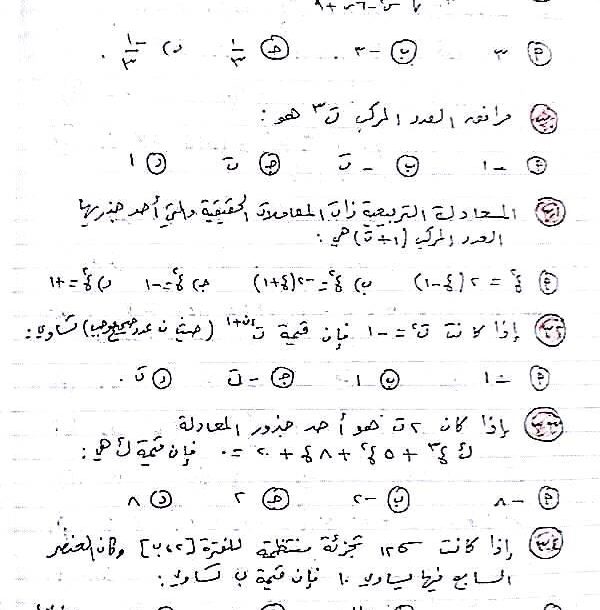 ٣ (أ) ٣- (ب) ١/٣ (جـ) ١-/٣ (د)
(٣٠) مرافق العدد المركب ت٣ هو :
(أ) -١ (ب) -ت (جـ) ت (د) ١
(٣١) المعادلة التربيعية ذات المعاملات الحقيقية والتي أحد جذريها
العدد المركب (١+ت) هي :
(أ) ع٢ = ٢(ع-١) (ب) ع٢ = -٢(ع+١) (جـ) ع٢ = -١ (د) ع٢ = +١
(٣٢) إذا كانت ت٢ = -١ فإن قيمة ت٤ن+١ (حيث ن عدد صحيح موجب) تساوي :
(أ) -١ (ب) ١ (جـ) -ت (د) ت
(٣٣) إذا كان ٢ت هو أحد جذور المعادلة
ك ع٣ + ٥ع٢ + ٨ع + ٢٠ = ٠ فإن قيمة ك هي :
(أ) -٨ (ب) -٢ (جـ) ٢ (د) ٨
(٣٤) إذا كانت σ١٢ تجزئة منتظمة للفترة [٢، ب] وكان العنصر
السابع فيها يساوي ١٠ فإن قيمة ب تساوي :